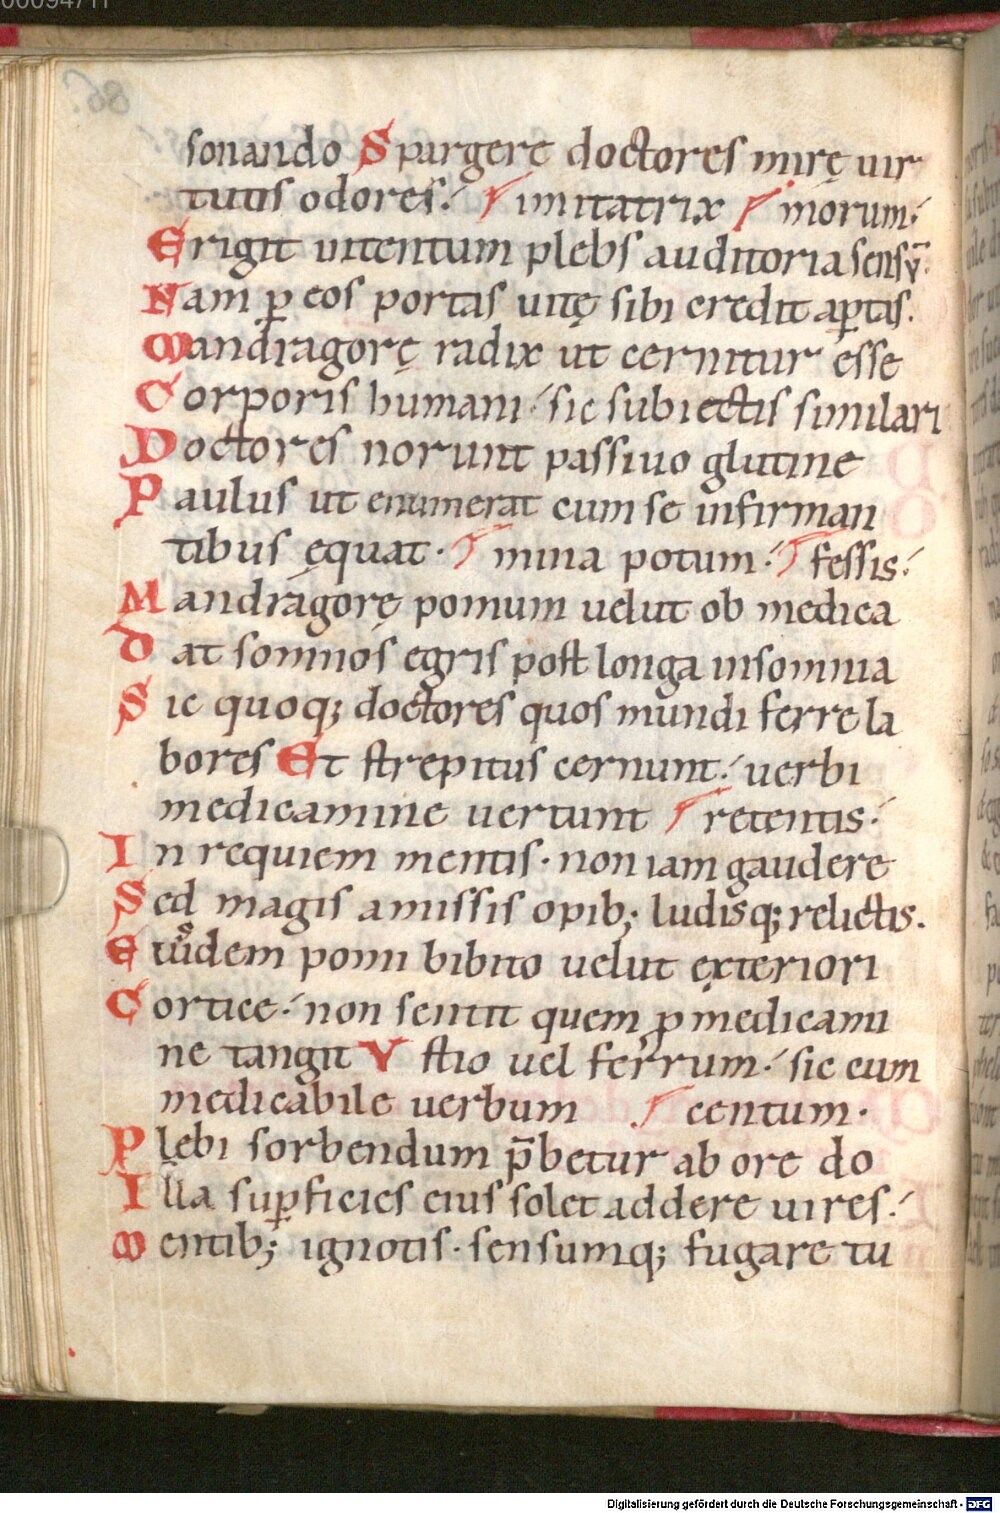 sonando Spargere doctores mirę uir
tutis odores. imitatrix morum.
Erigit intentum plebs auditoria sensū.
Nam ꝑ eos portas uitę sibi credit aꝑtas.
Mandragorę radix ut cernitur esse
Corporis humani. sic subiectis similari
Doctores norunt passiuo glutine
Paulus ut enumerat cum se infirman
tibus ęquat. mina potum. fessis.
Mandragorę pomum uelut ob medica
Dat somnos egris post longa insomnia
Sic quoq; doctores quos mundi ferre la
bores Et strepitus cernunt. uerbi
medicamine uertunt retentis.
In requiem mentis. non iam gaudere
Sed magis amissis opib; ludisq; relictis.
dem pomi bibito uelut exteriori
Cortice. non sentit quem ꝑ medicami
ne tangit Vstio uel ferrum. sic eum
medicabile uerbum centum.
Plebi sorbendum p̄betur ab ore do
Illa suꝑficies eius solet addere uires.
Mentib; ignotis. sensumq; fugare tu
Digitalisierung gefördert durch die Deutsche Forschungsgemeinschaft - DFG